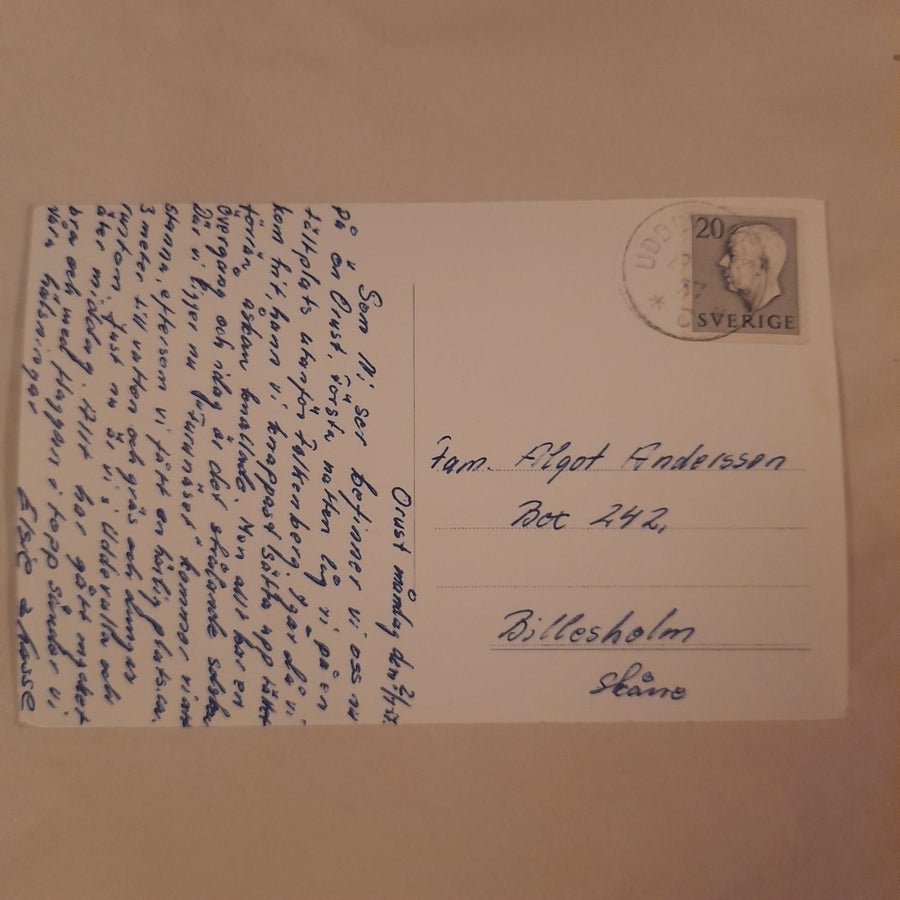 Orust måndag den
Som Ni ser befinner vi oss nu
på ön Orust. Första natten låg vi på en
tältplats utanför Falkenberg, igår då vi
kom hit, hann vi knappast sätta upp tältet
förrän åskan knallade. Men allt har en
övergång och idag är det strålande solsken.
Där vi ligger nu "Furunäset" kommer vi att
stanna, eftersom vi fått en härlig plats, ca.
3 meter till vatten och gräs och dungar
runtom. Just nu är vi i Uddevalla och
äter middag. Allt har gått mycket
bra och med Flaggan i topp sänder vi
våra hälsningar
Elsie o Lasse
UDDE
20
SVERIGE
Fam. Algot Anderssen
Box 242,
Billesholm
Skåne